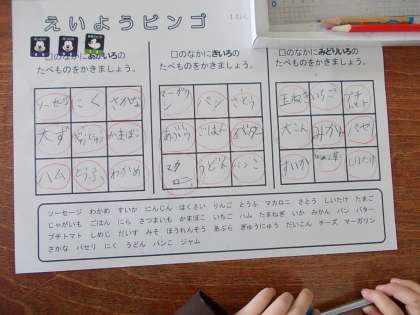 えいようビンゴ
□のなかにあかいろの
たべものをかきましょう。
□のなかにきいろの
たべものをかきましょう。
□のなかにみどりいろの
たべものをかきましょう。
ソーセージ にく さかな
大ず ぎゅうにゅう かまぼこ
ハム とうふ わかめ
マーガリン パン さとう
あぶら ごはん バター
マカロニ うどん パンこ
玉ねぎ いちご プチトマト
大こん みかん パセリ
すいか しいたけ
ソーセージ わかめ すいか にんじん はくさい りんご とうふ マカロニ さとう しいたけ たまご
じゃがいも ごはん にら さつまいも かまぼこ いちご ハム たまねぎ いか みかん パン バター
プチトマト しめじ だいず みそ ほうれんそう あぶら ぎゅうにゅう だいこん チーズ マーガリン
さかな パセリ にく うどん パンこ ジャム